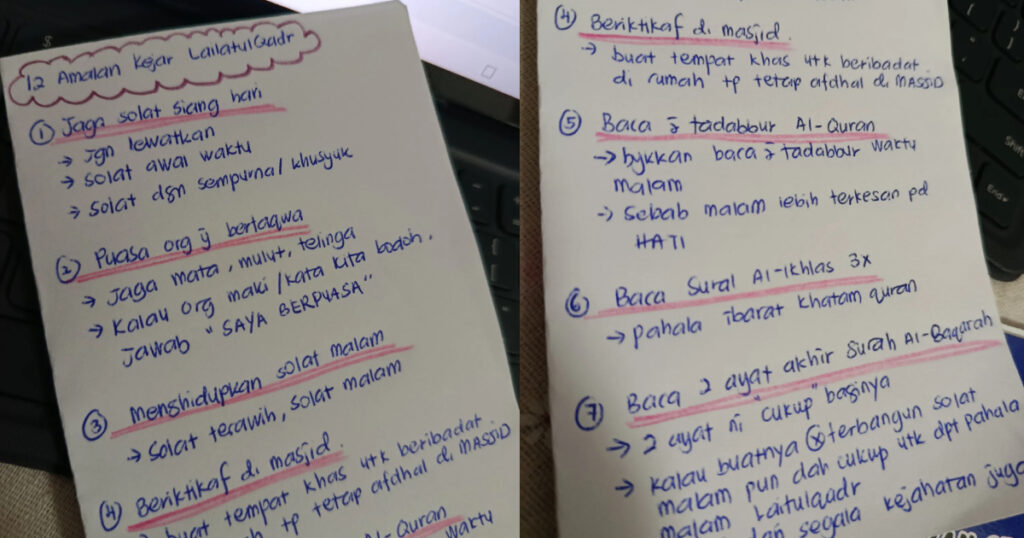 12 Amalan Kejar LailatulQadr
① Jaga solat siang hari
→ Jgn lewatkan
→ solat awal waktu
→ solat dgn sempurna/khusyuk
② Puasa org yg bertaqwa
→ Jaga mata, mulut, telinga
→ Kalau org maki/kata kita bodoh,
jawab "SAYA BERPUASA"
③ Menghidupkan solat malam
→ Solat terawih, solat malam
④ Beriktikaf di masjid.
→ buat tempat khas utk beribadat
tp tetap afdhal di MASJID
Al-Quran
waktu
④ Beriktikaf di masjid.
→ buat tempat khas utk beribadat
di rumah tp tetap afdhal di MASJID
⑤ Baca & tadabbur Al-Quran
→ bykkan baca & tadabbur waktu
malam
→ Sebab malam lebih terkesan pd
HATI
⑥ Baca Surah Al-Ikhlas 3x
→ pahala ibarat khatam quran
⑦ Baca 2 ayat akhir Surah Al-Baqarah
→ 2 ayat ni "cukup" baginya
→ kalau buatnya ⓧ terbangun solat
malam pun dah cukup utk dpt pahala
malam Laitulqadr
segala kejahatan juga
Enter